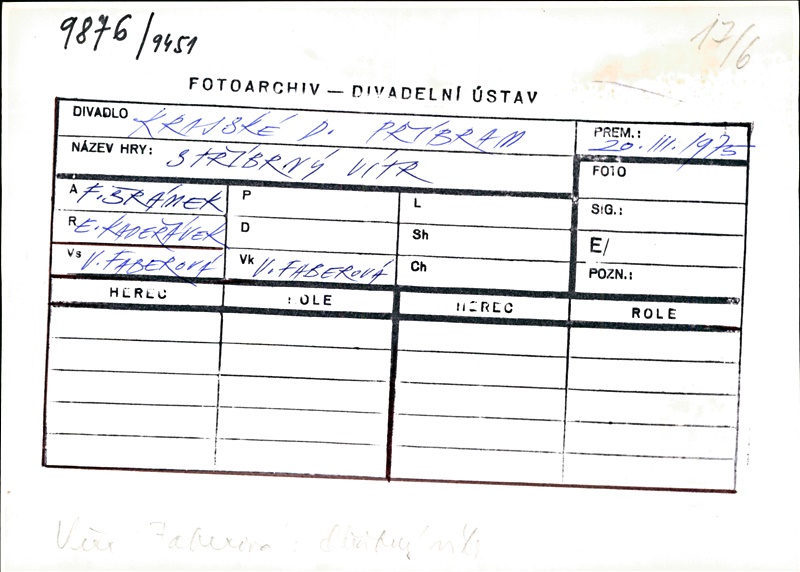 9876/9451
17/6
FOTOARCHIV — DIVADELNÍ ÚSTAV
DIVADLO KRAJSKÉ D. PŘÍBRAM
PREM.: 20. III. 1975
NÁZEV HRY: STŘÍBRNÝ VÍTR
FOTO
A F. ŠRÁMEK
P
L
SIG.:
R E. KADEŘÁVEK
D
Sh
E/
Vs V. FABEROVÁ
Vk V. FABEROVÁ
Ch
POZN.:
HEREC ROLE HEREC ROLE
Faberová: Stříbrný vítr